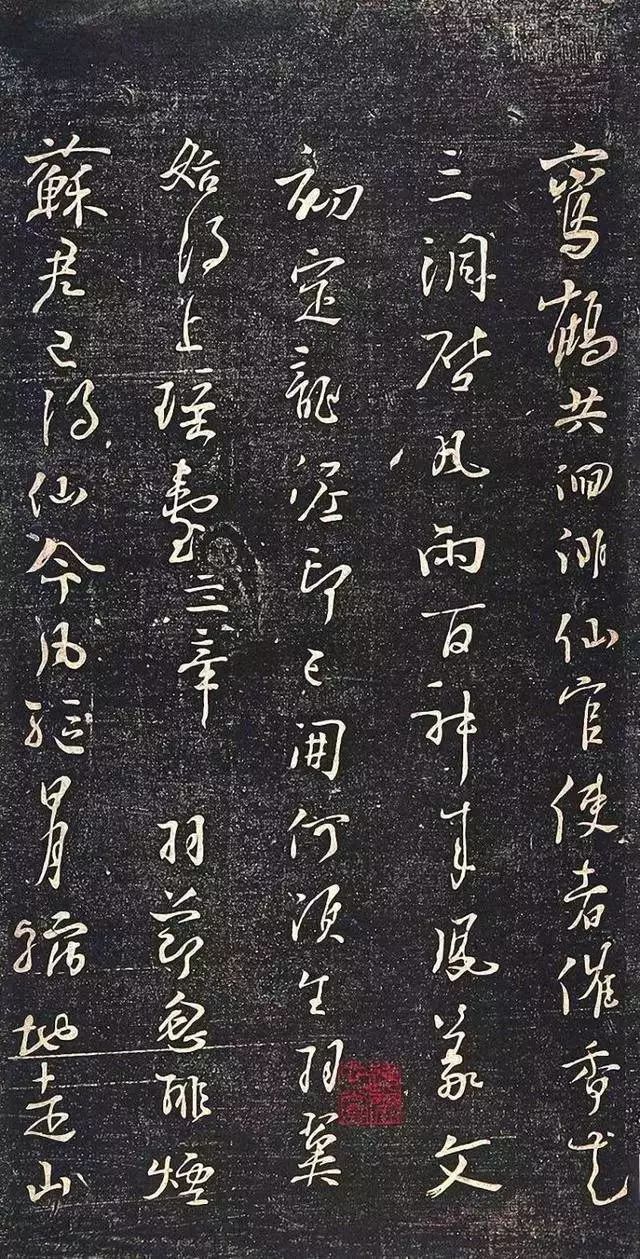 鸞鶴共徊徘仙官使者催香花
三洞啓風雨百神來鳳篆文
初定龍泥印已開何須生羽翼
始得上瑤臺 三章 羽節忽排煙
蘇君已得仙命風驅日月縮地走山